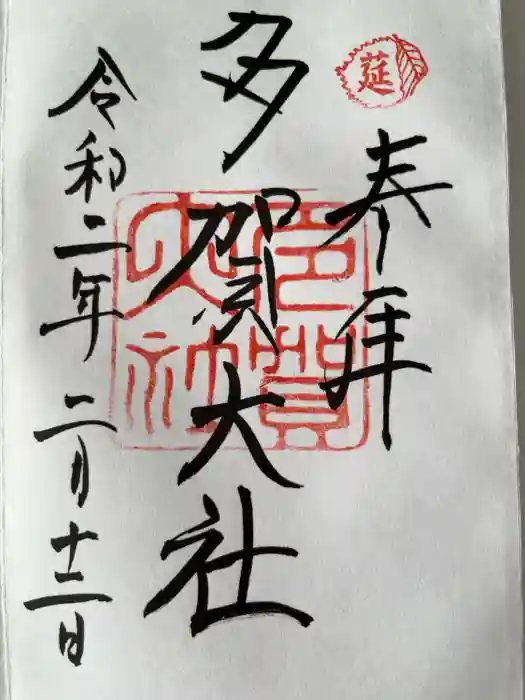 莚
奉拝
多賀大社
多賀大社
令和二年二月十二日